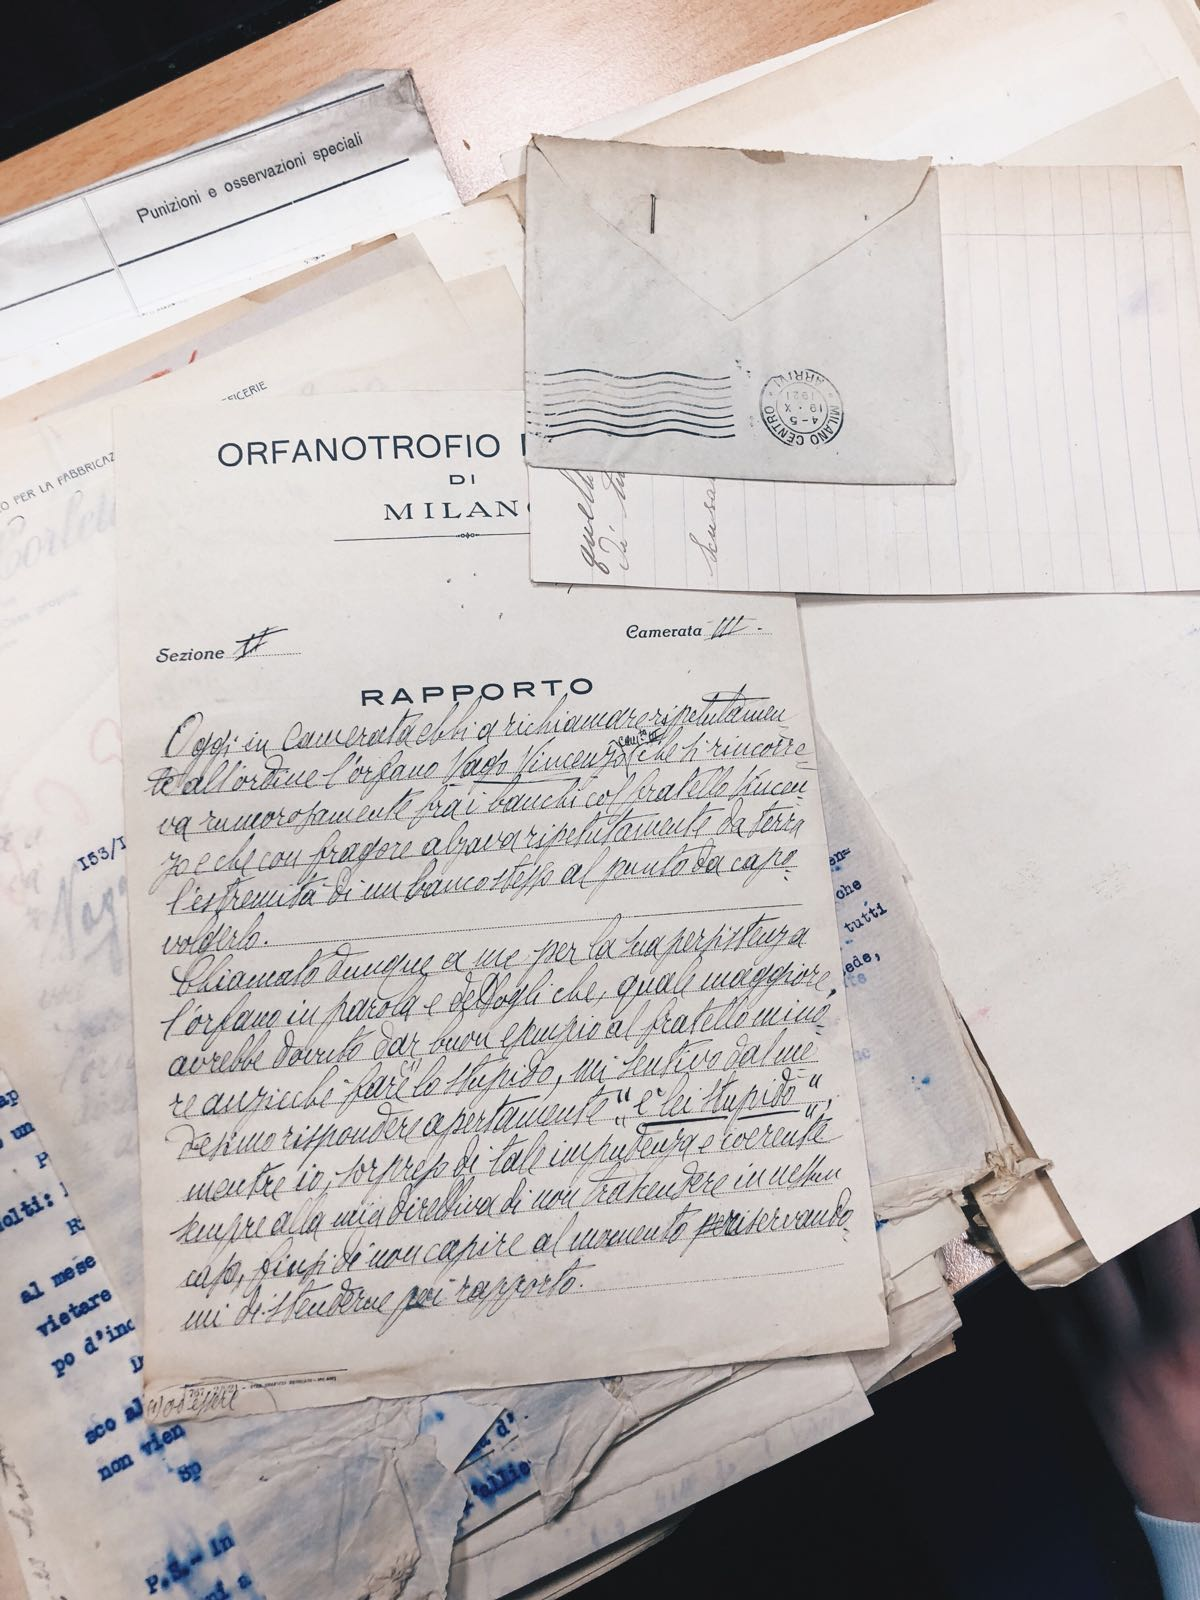 Punizioni e osservazioni speciali
MILANO CENTRO
4-5
19 · X
1921
ARRIVI
quella
di
scusa
FICERIE
O PER LA FABBRICAZ
ORFANOTROFIO
DI
MILAN
Sezione II
Camerata III.
RAPPORTO
Oggi in Camerata ebbi a richiamare ripetutamen
te all'ordine l'orfano Vago Vincenzo che si rincorre-
va rumorosamente fra i banchi col fratello Vincen
zo e che con fragore alzava ripetutamente da terra
l'estremità di un banco stesso al punto da capo-
volgerlo.
Chiamato dunque a me per la sua persistenza
l'orfano in parola e dettogli che, quale maggiore,
avrebbe dovuto dar buon esempio al fratello mino-
re anzicchè "fare lo stupido, mi sentivo dal me-
desimo rispondere apertamente "e lei stupido",
mentre io, sorpreso di tale impudenza e coerente
sempre alla mia direttiva di non trascendere in nessun
caso, finsi di non capire al momento riservando-
mi di stenderne poi rapporto.
I53/I
en=
che
tutti
ede,
ap
un
P
olti:
al mese
vietare
po d'inc
sco al
non vien
Sp
P.S.- In
ni a
a d'
'allie